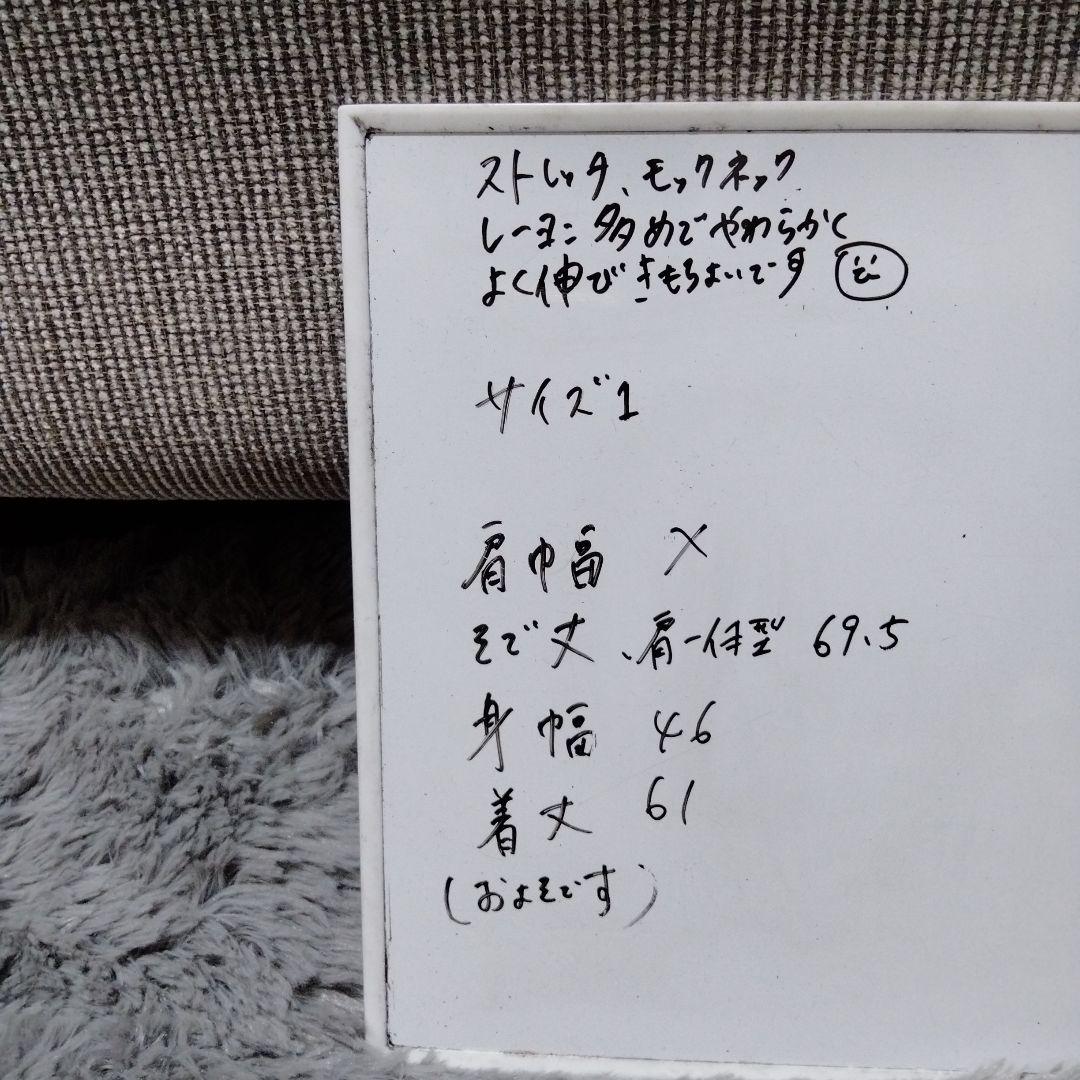 ストレッチ、モックネック
レーヨン多めでやわらかく
よく伸びきもちよいです
サイズ1
肩巾幅 ×
そで丈、肩一体型 69.5
身幅 46
着丈 61
(およそです)